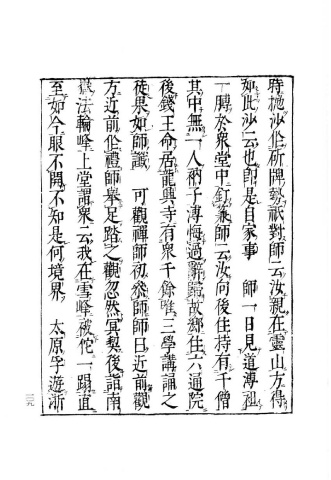 時拋沙作斫牌勢祇對師云汝親在靈山方得
如此沙云也即是自家事　師一日見道溥袒
一膊於衆堂中釘簾師云汝向後住持有千僧
其中無一人衲子溥悔過辭歸故鄉住六通院
後錢王命居龍興寺有衆千餘唯三學講誦之
徒果如師識　可觀禪師初參師師曰近前觀
方近前作禮師舉足踏之觀忽然冥契後詣南
嶽法輪峰上堂謂衆云我在雪峰被佗一蹋直
至如今眼不開不知是何境界　太原孚遊浙
三九